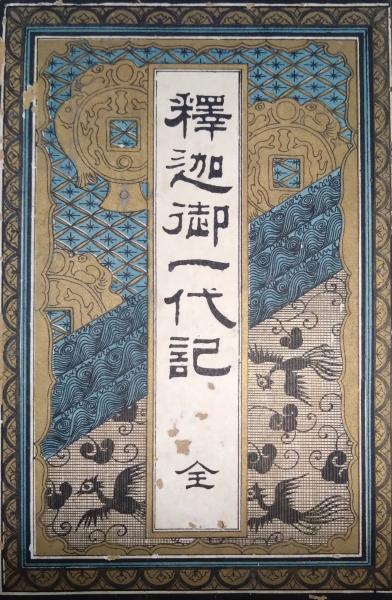 釋迦御一代記
全